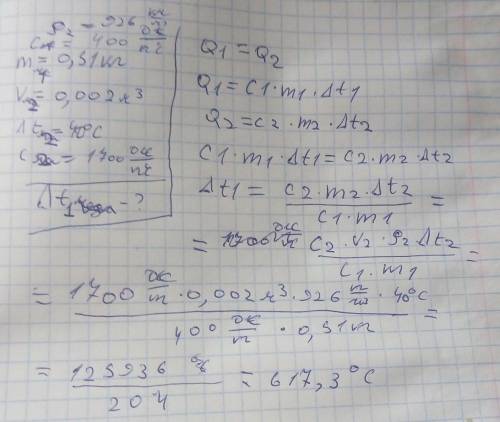 ρ₂ = 926 кг/м³
c₁ = 400 Дж/кг
m₁ = 0,51 кг
V₂ = 0,002 м³
Δt₂ = 40°C
c₂ = 1700 Дж/кг
Δt₁ - ?
Q1 = Q2
Q1 = c1 · m1 · Δt1
Q2 = c2 · m2 · Δt2
c1 · m1 · Δt1 = c2 · m2 · Δt2
Δt1 = c2 · m2 · Δt2 / c1 · m1 =
= c2 · V2 · ρ2 Δt2 / c1 · m1 =
= 1700 · 0,002 м³ · 926 · 40°C / 400 · 0,51 кг =
= 125936 / 204 = 617,3°C